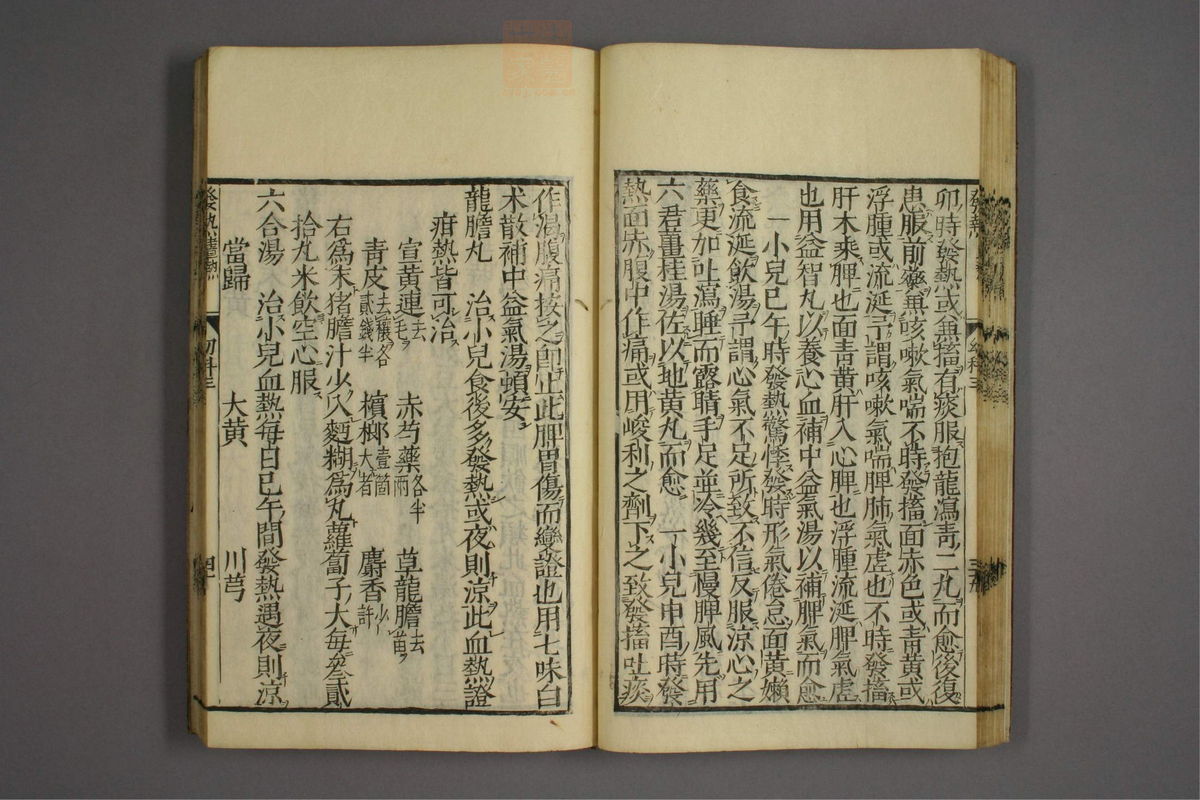 卯時發熱或無搐有痰服抱龍瀉青二丸而愈後復
患服前藥無咳嗽氣喘不時發搐面赤色或青黄或
浮腫或流延予謂咳嗽氣喘脾肺氣虚也不時發搐
肝木乘脾也面青黄肝入心脾也浮腫流延脾氣虚
也用益智丸以養心血補中益氣湯以補脾氣而愈
一小兒巳午時發熱驚悸發時形氣倦怠面黄嬾
食流延飲湯予謂心氣不足所致不信反服凉心之
藥更加吐瀉睡而露睛手足並冷幾至慢脾風先用
六君薑桂湯佐以地黄丸而愈 一小兒申酉時發
熱面赤腹中作痛或用峻利之劑下之致發搐吐痰
作渇腹痛按之即止此脾胃傷而變證也用七味白
术散補中益氣湯頓安
龍膽丸 治小兒食後多發熱或夜則凉此血熱證
疳熱皆可治
宣黄連去毛 赤芍藥各半兩 草龍膽去苗
青皮去穰各貳錢半 檳榔大者壹箇 麝香少許
右爲末猪膽汁少入麪糊爲丸蘿蔔子大每叄貳
拾丸米飲空心服
六合湯 治小兒血熱每日巳午間發熱遇夜則凉
當歸 大黄 川芎